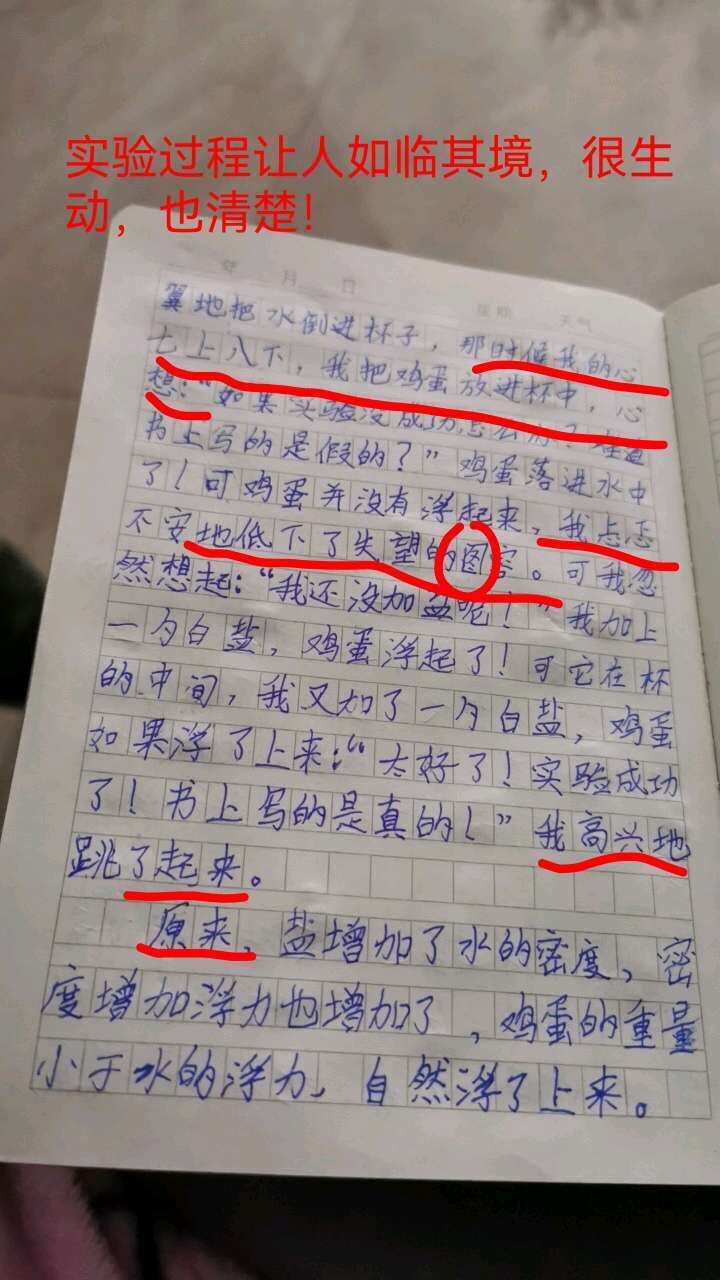 实验过程让人如临其境，很生
动，也清楚！
年 月 日 星期 天气
翼地把水倒进杯子，那时候我的心
七上八下，我把鸡蛋放进杯中，心
想：“如果实验没成功怎么办？难道
书上写的是假的？”鸡蛋落进水中
了！可鸡蛋并没有浮起来，我忐忑
不安地低下了失望的图容。可我忽
然想起：“我还没加盐呢！”我加上
一勺白盐，鸡蛋浮起了！可它在杯
的中间，我又加了一勺白盐，鸡蛋
如果浮了上来：“太好了！实验成功
了！书上写的是真的！”我高兴地
跳了起来。
原来，盐增加了水的密度，密
度增加浮力也增加了，鸡蛋的重量
小于水的浮力，自然浮了上来。